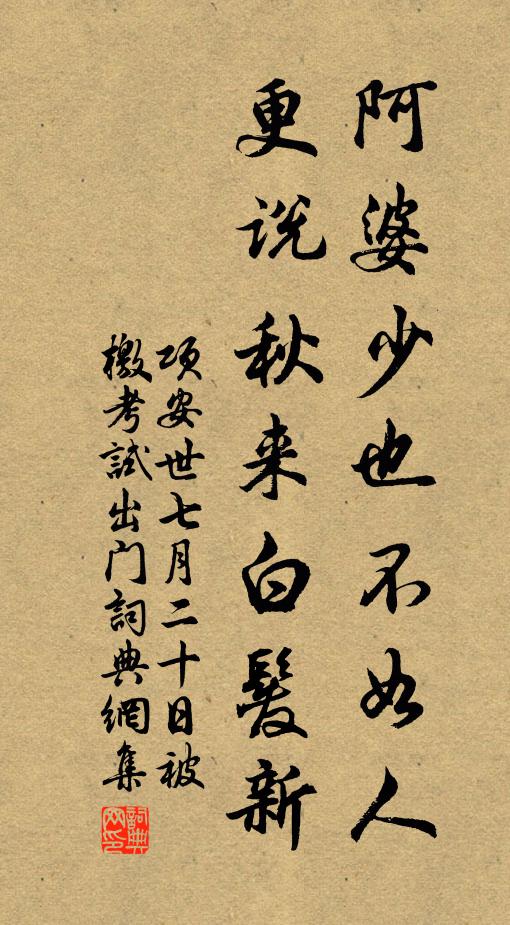 阿婆少也不如人
更説秋来白髮新
項安世七月二十日被
檄考試出门詞典網集
詞典网印